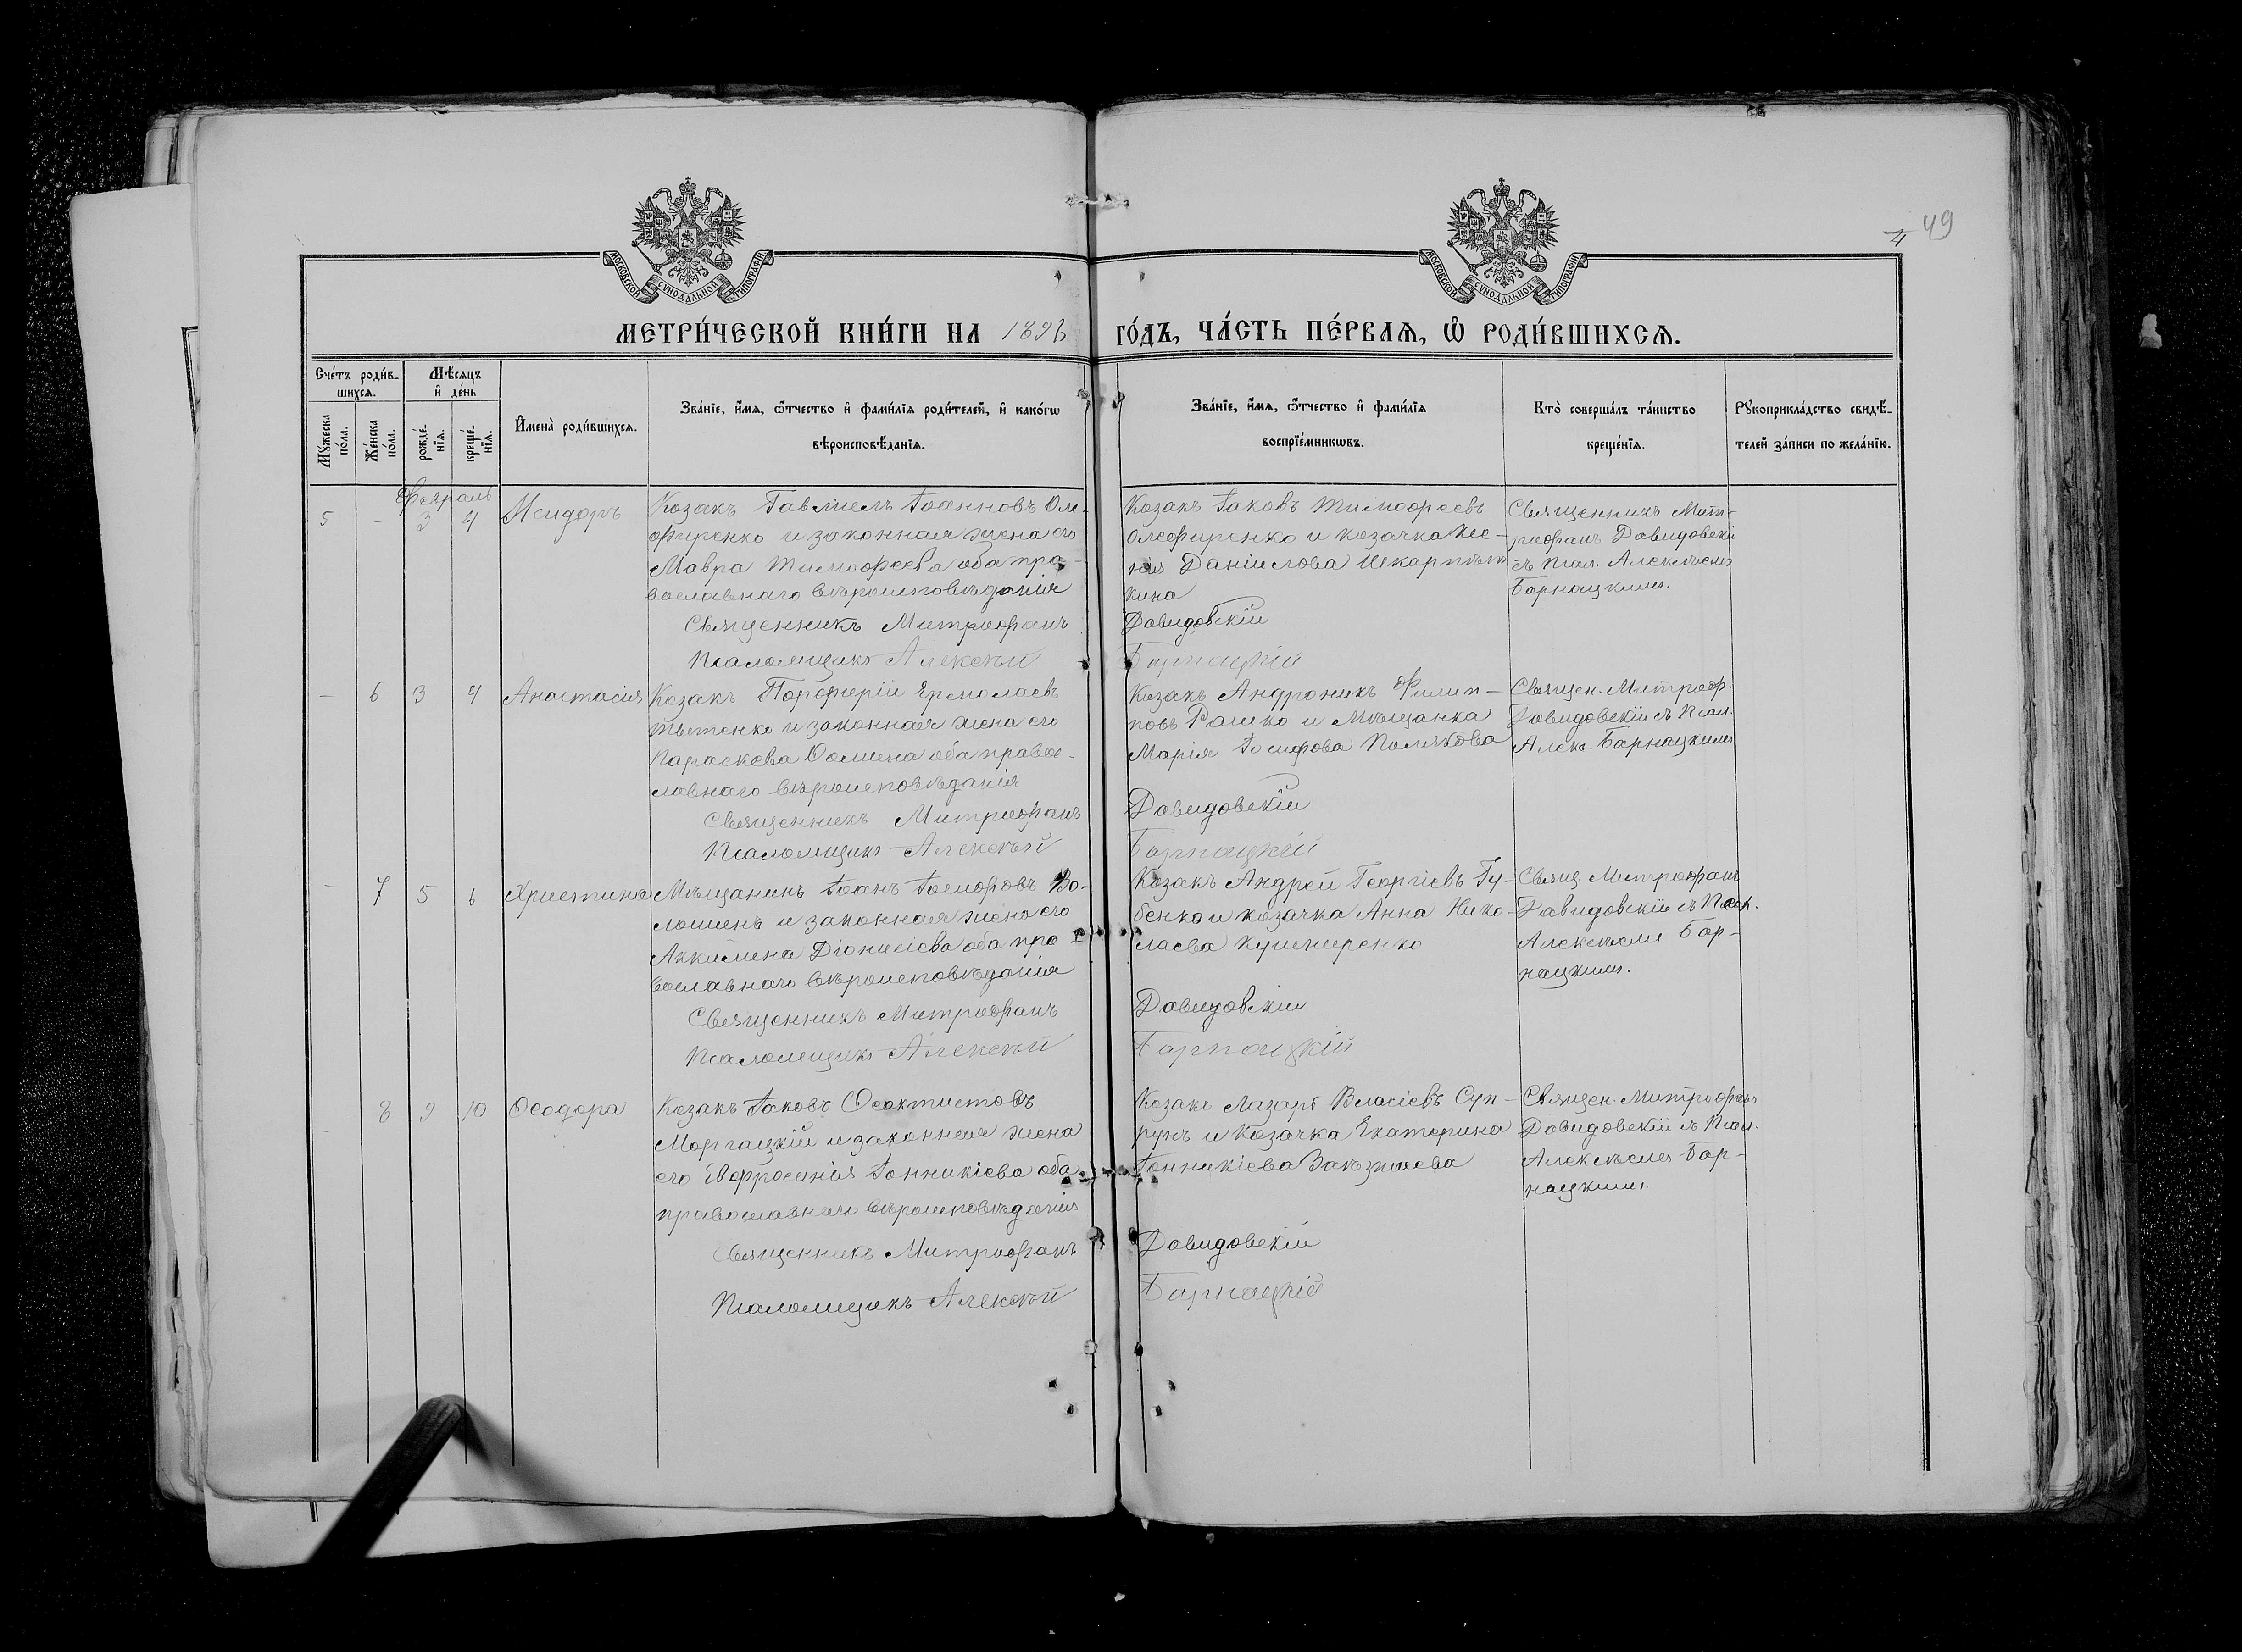 49
4
МОСКОВСКОЙ СѴНОДАЛЬНОЙ ТИПОГРАФІИ
МОСКОВСКОЙ СѴНОДАЛЬНОЙ ТИПОГРАФІИ
МЕТРИ́ЧЕСКОЙ КНИ́ГИ НА 1896 ГО́ДЪ, ЧА́СТЬ ПЕ́РВАѦ, Ѡ҆ РОДИ́ВШИХСѦ.
Сче́тъ роди́в-
шихсѧ.
Мѣ́сѧцъ
и҆ де́нь
Мꙋ́жеска
по́ла.
Же́нска
по́ла.
рожде́-
нїѧ.
креще́-
нїѧ.
И҆мена̀ роди́вшихсѧ.
Зва́нїе, и҆́мѧ, ѻ҆́тчество и҆ фами́лїѧ роди́телей, и҆ како́гѡ
вѣроисповѣ́данїѧ.
Зва́нїе, и҆́мѧ, ѻ҆́тчество и҆ фами́лїѧ
воспрїе́мникѡвъ.
Кто̀ соверша́лъ та́инство
креще́нїѧ.
Рꙋкоприкла́дство свидѣ́-
телей за́писи по жела́нїю.
Февраль
5 - 3 4 Исидоръ
Козакъ Гавріилъ Іоанновъ Оле-
фиренко и законная жена его
Мавра Тимофеева оба пра-
вославнаго вѣроисповѣданія
Священникъ Митрофанъ
Псаломщикъ Алексѣй
Козакъ Іаковъ Тимофеевъ
Олефиренко и козачка Ксе-
нія Даніилова
кина
Давидовскій
Барнацкій
Священникъ Мит-
рофанъ Давидовскій
съ Псал. Алексѣемъ
Барнацкимъ.
- 6 3 4 Анастасія
Козакъ Порфирій Ермолаевъ
и законная жена его
Параскева Фомина оба правос-
лавнаго вѣроисповѣданія
Священникъ Митрофанъ
Псаломщикъ Алексѣй
Козакъ Андроникъ Филип-
повъ Рашко и Мѣщанка
Марія Іосифова Полякова
Давидовскій
Барнацкій
Священ. Митроф.
Давидовскій съ Псал.
Алек. Барнацкимъ
- 7 5 6 Христина
Мѣщанинъ Іоанъ Іосифовъ Во-
лошенъ и законная жена его
Акилина Діонисіева оба пра-
вославнаго вѣроисповѣданія
Священникъ Митрофанъ
Псаломщикъ Алексѣй
Козакъ Андрей Георгіевъ Гу-
бенко и козачка Анна Нико-
лаева Кушниренко
Давидовскій
Барнацкій
Свящ. Митрофанъ
Давидовскій съ Псал.
Алексѣемъ Бар-
нацкимъ.
- 8 9 10 Феодора
Козакъ Іаковъ Феоктистовъ
Моргацкій и законная жена
его Евфросинія Іоникіева оба
православнаго вѣроисповѣданія
Священникъ Митрофанъ
Псаломщикъ Алексѣй
Козакъ Лазарь Власіевъ Суп-
рунъ и Козачка Екатерина
Іонникіева
Давидовскій
Барнацкій
Священ. Митрофанъ
Давидовскій съ Псал.
Алексѣемъ Бар-
нацкимъ.